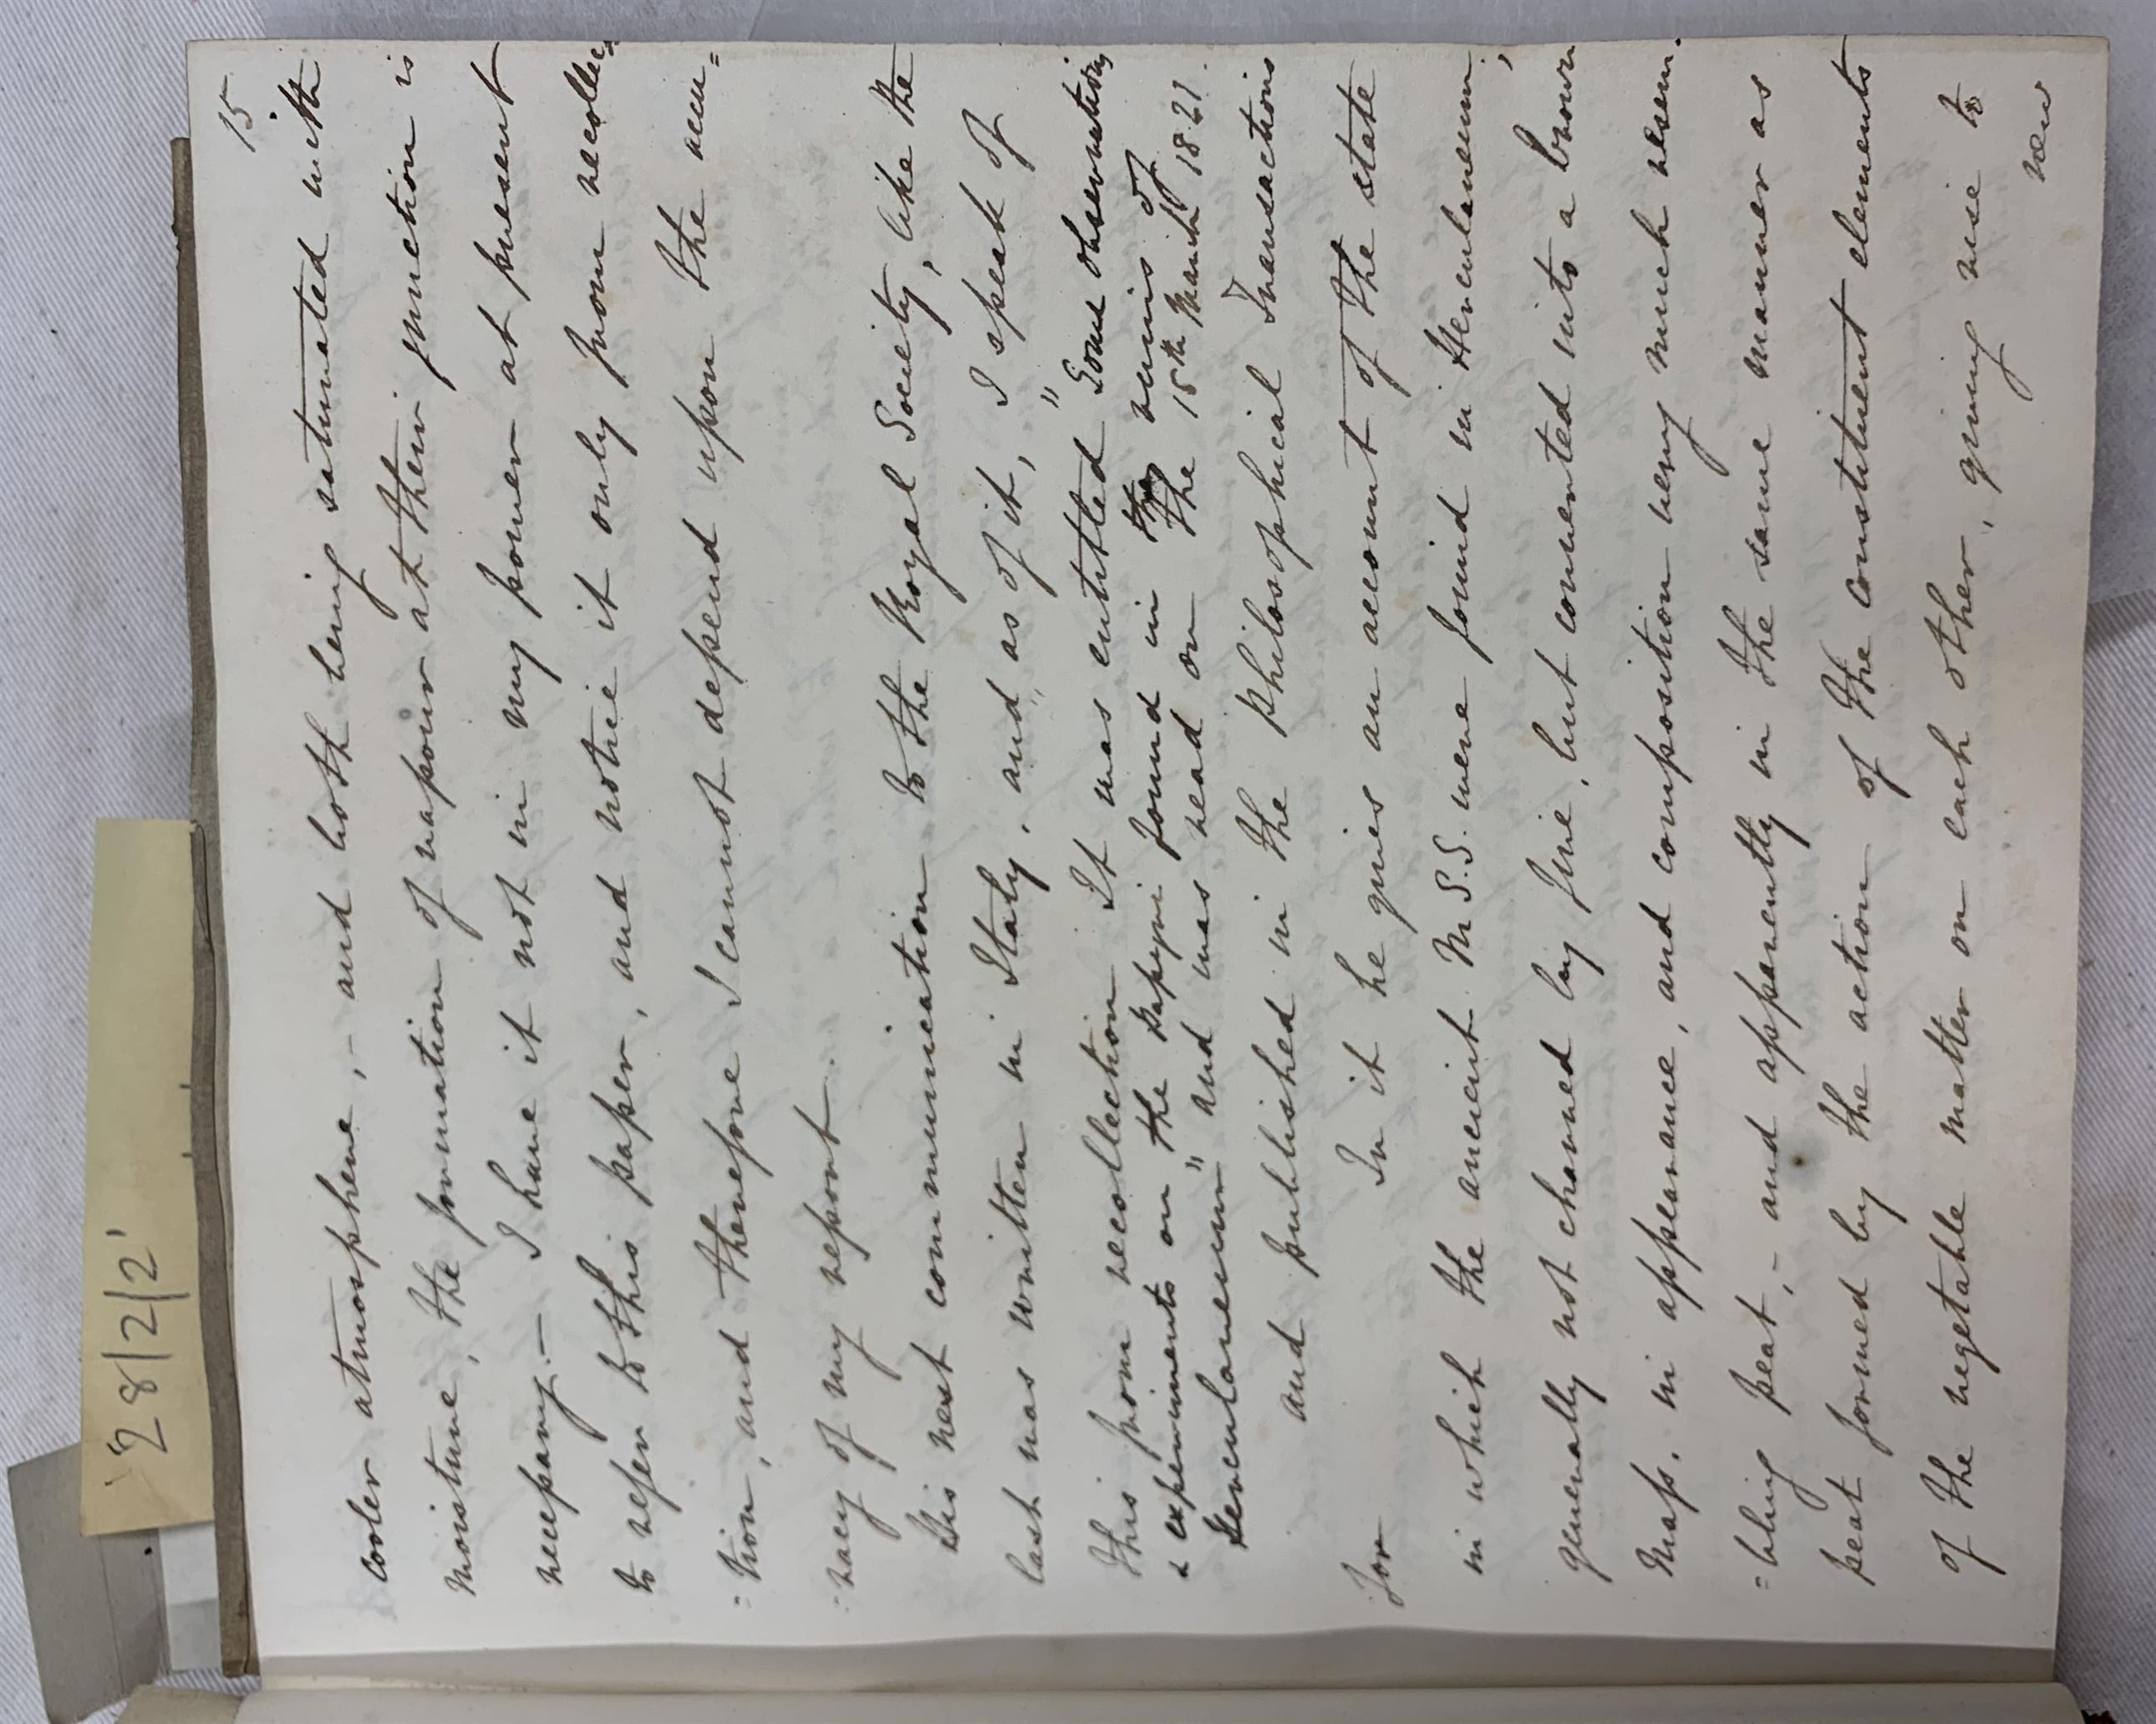 28/2/2'
15
cooler atmosphere, – and both being saturated with
moisture, the formation of vapour at their junction is
necessary. – I have it not in my power at present
to refer to this paper, and notice it only from recollec=
=tion, and therefore I cannot depend upon the accu=
=racy of my report.
His next communication to the Royal Society, like the
last was written in Italy. and, as of it, I speak of
this from recollection It was entitled " Some observations
& experiments on the papyri found in the ruins of
Herculaneum" and was read on the 15th March 1821.
and published in the philosophical Transactions
for
In it he gives an account of the state
in which the ancient M.S.S. were found in Herculaneum;
generally not charred by fire, but converted into a brown
mass. in appearance, and composition very much resem.
=bling peat, – and apparently in the same manner as
peat formed by the action of the constituent elements
of the vegetable matter on each other, giving rise to
new